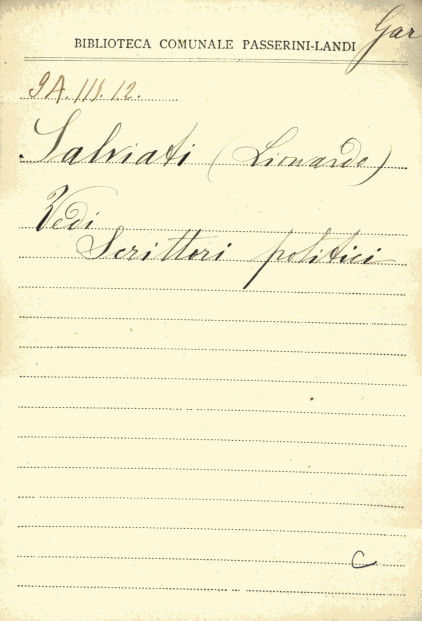 Gar
BIBLIOTECA COMUNALE PASSERINI-LANDI
9A.III.12.
Salviati (Lionardo)
Vedi
Scrittori politici
C